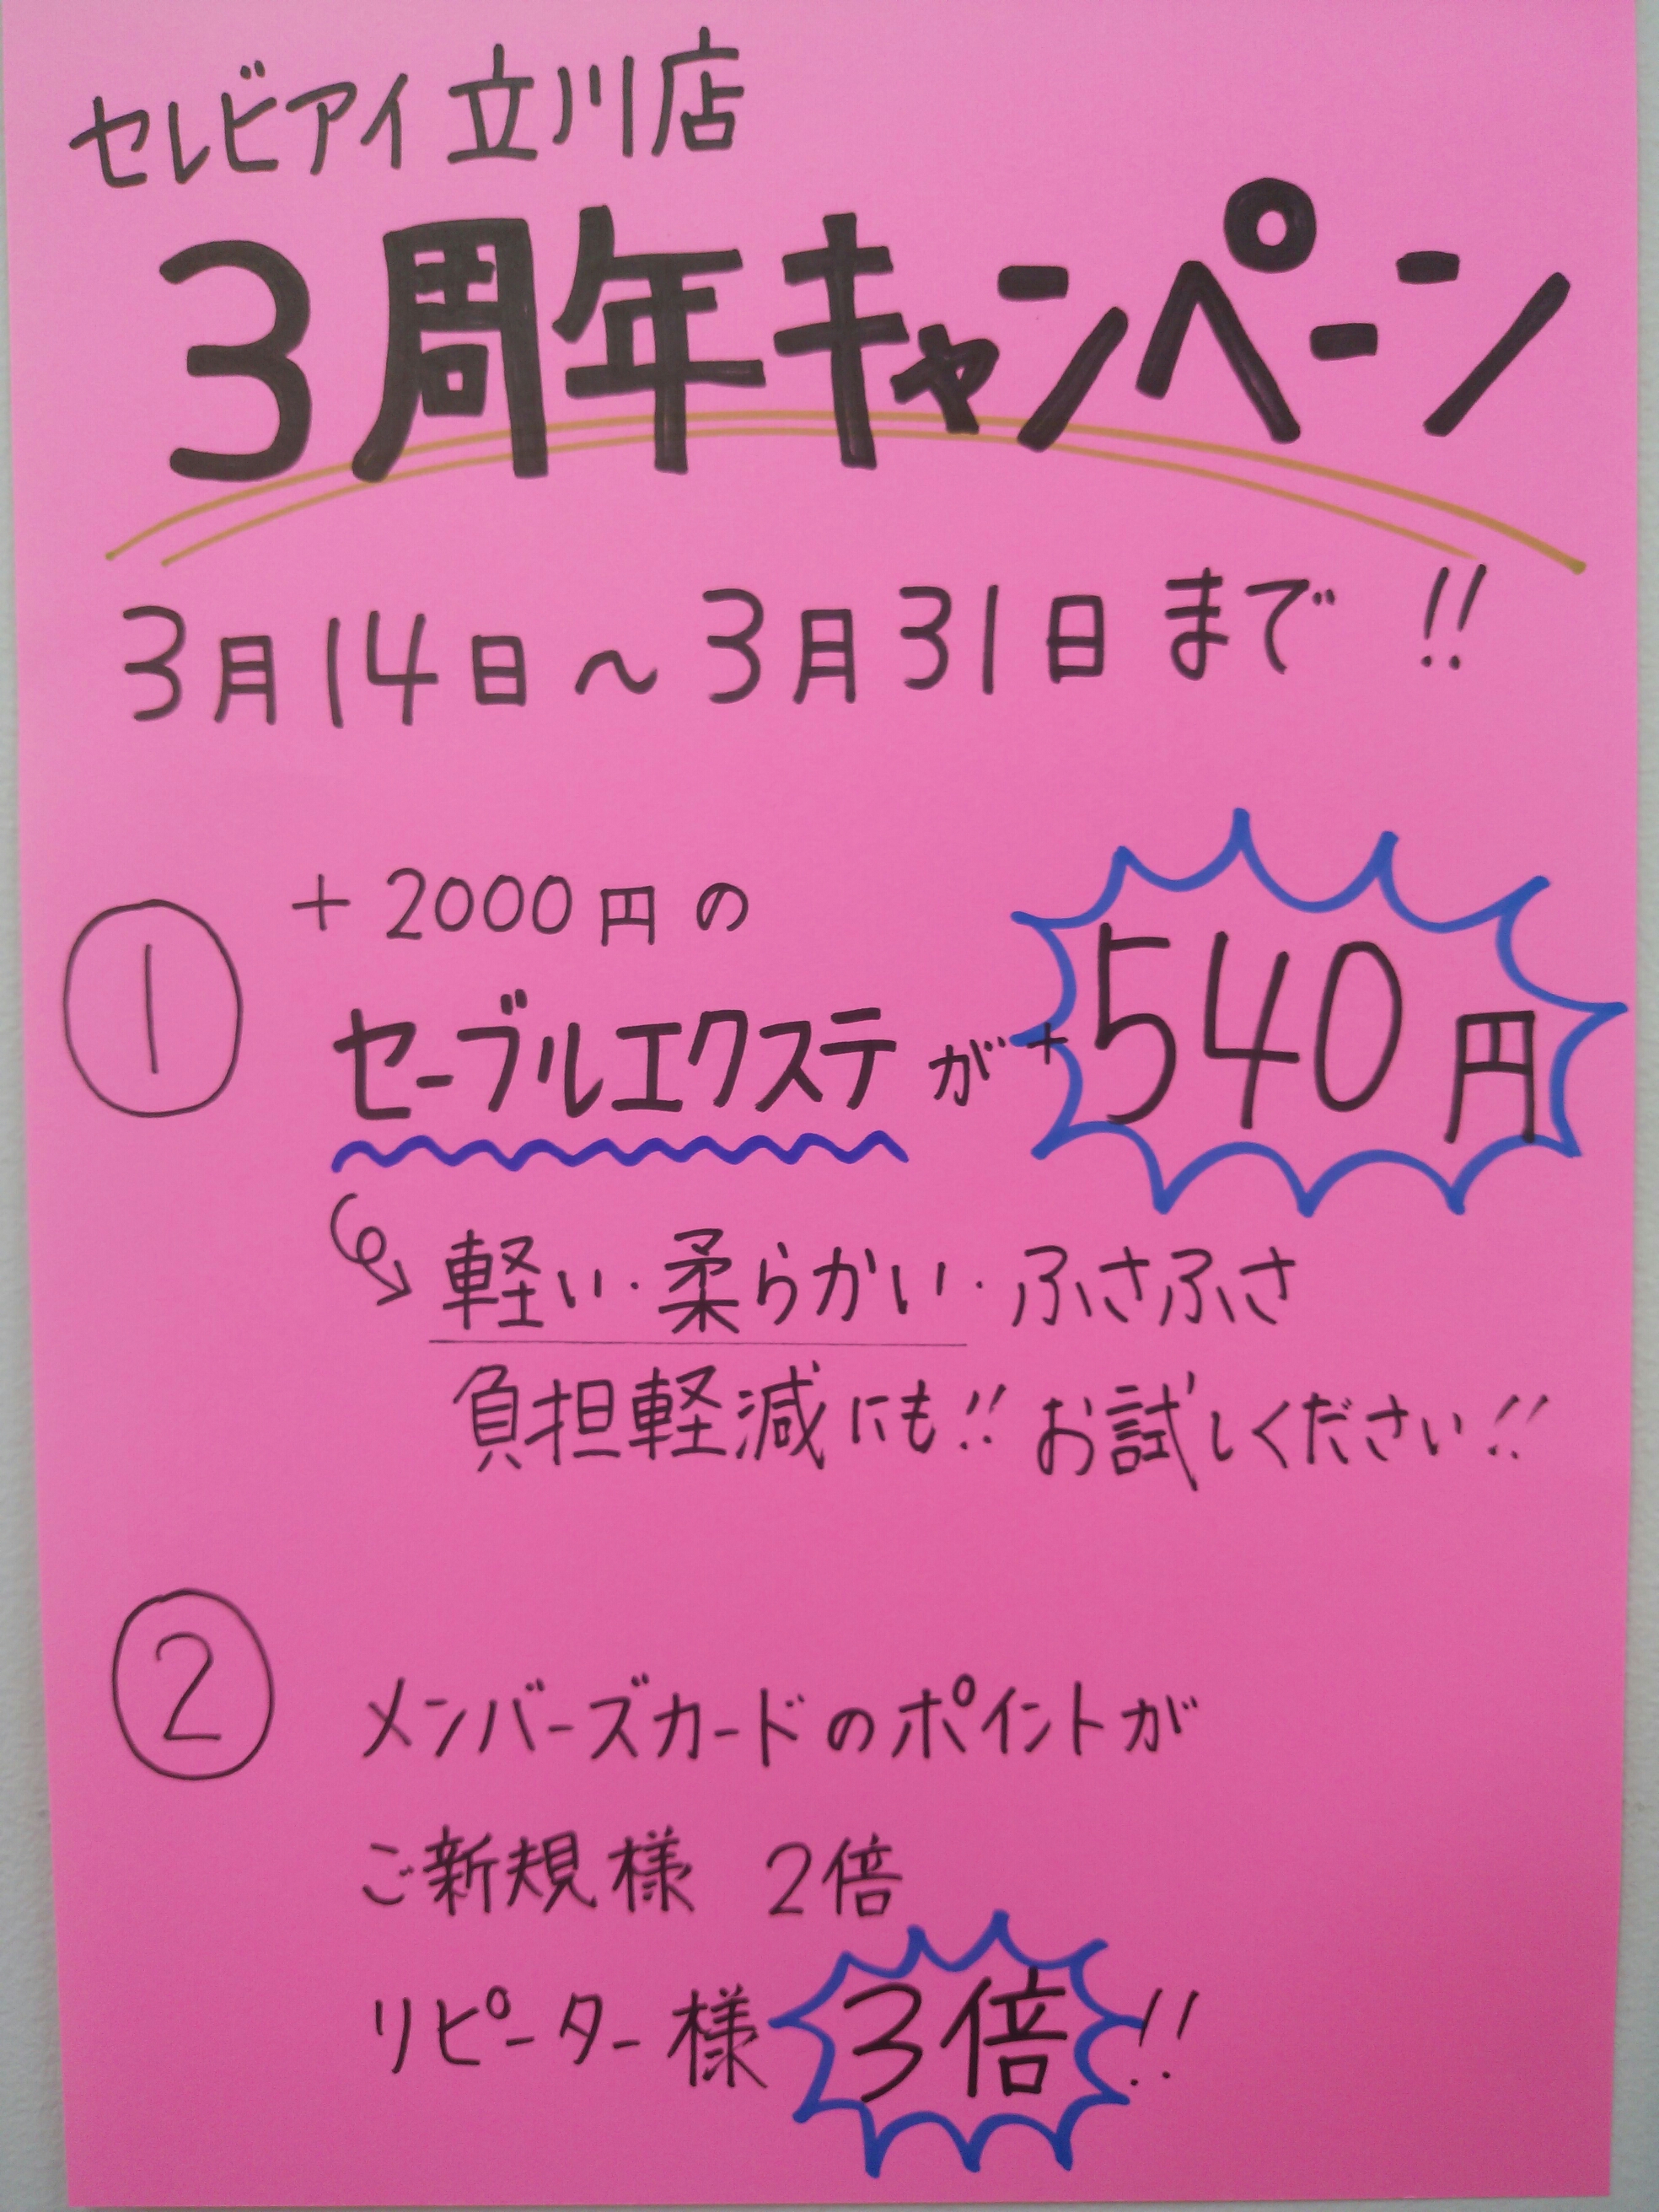 セレビアイ 立川店
3周年キャンペーン
3月14日～3月31日まで!!
① +2000円の
セーブルエクステが+540円
軽い・柔らかい・ふさふさ
負担軽減にも!! お試しください!!
② メンバーズカードのポイントが
ご新規様 2倍
リピーター様 3倍!!